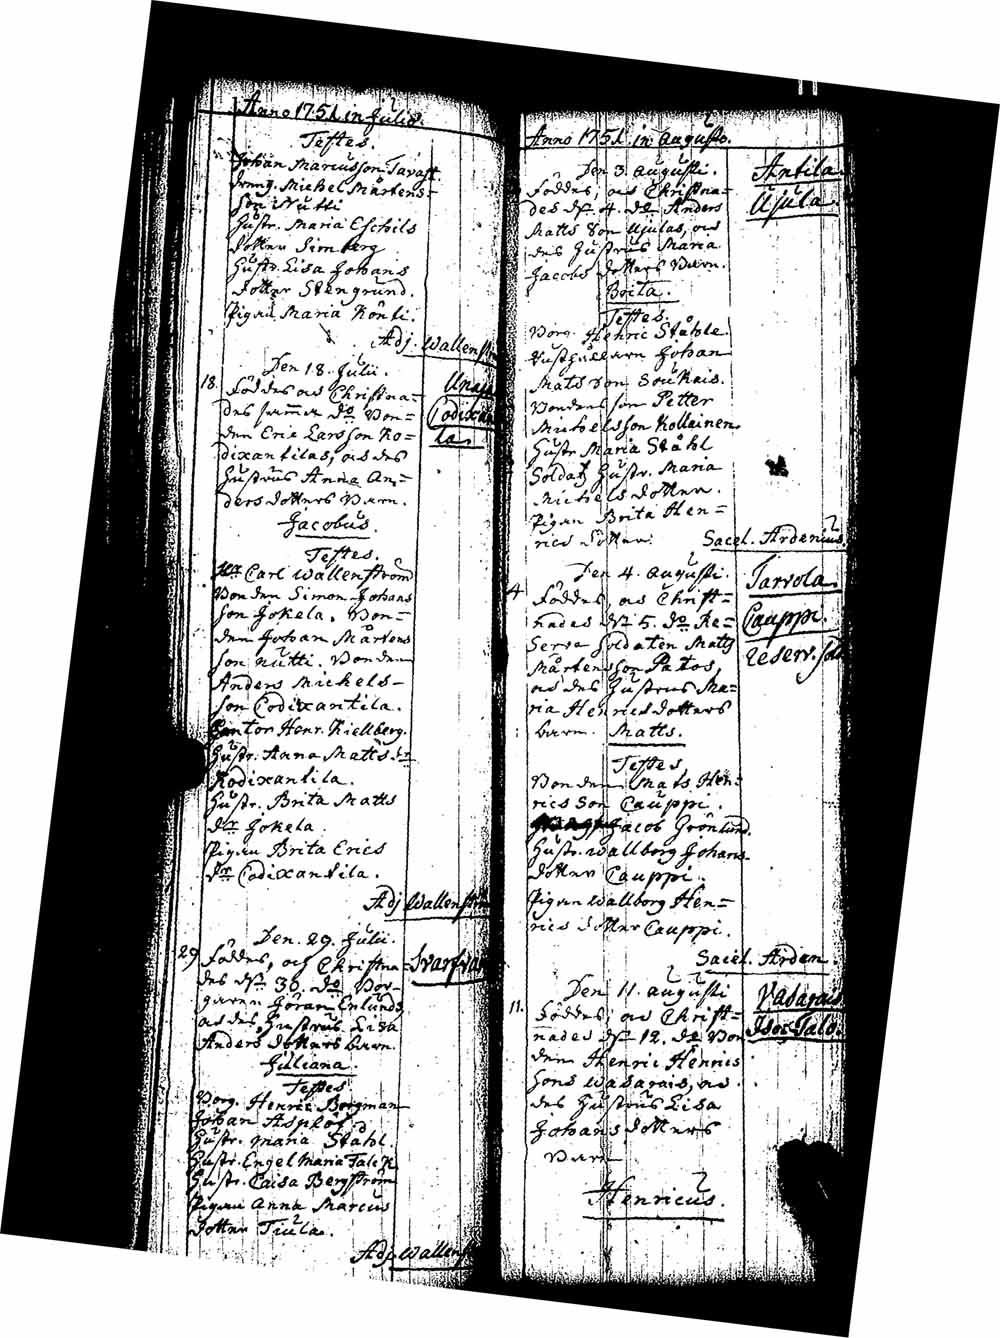 Anno 1751 in Julio.
Testes.
Johan Marcusson Tavast.
Dräng. Michel Mårtens-
son Nutti
Hustr. Maria Eschils
dotter Simberg
Hustr. Lisa Johans
dotter Stengrund.
Pigan Maria Könti.
Adj. Wallenström
Den 18. Julii.
18. Föddes, och Christna= Unaja
des samma do Bon= Codixan
den Eric Larsson Ko= la.
dixantilas, och des
hustrus Anna An=
ders dotters Barn.
Jacobus.
Testes.
Hr Carl Wallenström
Bonden Simon Johans
son Jokela. Bon=
den Johan Mårtens
son Nutti. Bonden
Anders Mickels-
son Codixantila.
Cantor Henr. Kiellberg.
Hustr. Anna Matts dr
Kodixantila.
Hustr. Brita Matts
dr Jokela.
Pigan Brita Erics
dr Codixantila.
Adj Wallenström
Den. 29. Julii.
29 Föddes, och Christna=
des dn 30. do Bor-
garen Göran Enlunds
och des Hustrus Lisa
Anders dotters barn.
Juliana.
Testes
Borg. Henric Borgman
Johan Asphof.
Hustr. Maria Ståhl.
Hustr. Engel Maria Falck
Hustr. Caisa Bergström
Pigan Anna Marcus
dotter Tiula.
Adj. Wallenst
Anno 1751. in Augusto.
Den 3. Augusti. Antila
Föddes, och Christna= Ujula.
des dn 4. do Anders
Matts son Ujulas, och
des Hustrus Maria
Jacobs dotters Barn.
Brita.
Testes.
Borg. Henric Ståhle
Johan
Mats son Soukais.
Bondeson Petter
Michelsson Kollainen
Hustr Maria Ståhl
Soldatz Hustr. Maria
Michels dotter.
Pigan Brita Hen=
rics dotter.
Sacel. Ardenius.
Den 4. Augusti. Tarvola
4 Föddes, och Christ= Cauppi.
nades dn 5. do Re= reserv. sold
serve Soldaten Matts
Mårtensson Patos,
och des Hustrus Ma=
ria Henrics dotters
barn. Matts.
Testes
Bonden Mats Hen=
rics son Cauppi.
Jacob Grönlund.
Hustr. Wallborg Johans
dotter Cauppi.
Pigan Wallborg Hen=
rics dotter Cauppi.
Sacel. Arden.
Den 11. Augusti Vasarais
11. Föddes, och Christ= Isos-Talo.
nades dn 12. do Bon
den Henric Henrics
sons Wasarais, och
des Hustrus Lisa
Johans dotters
Barn
Henricus.